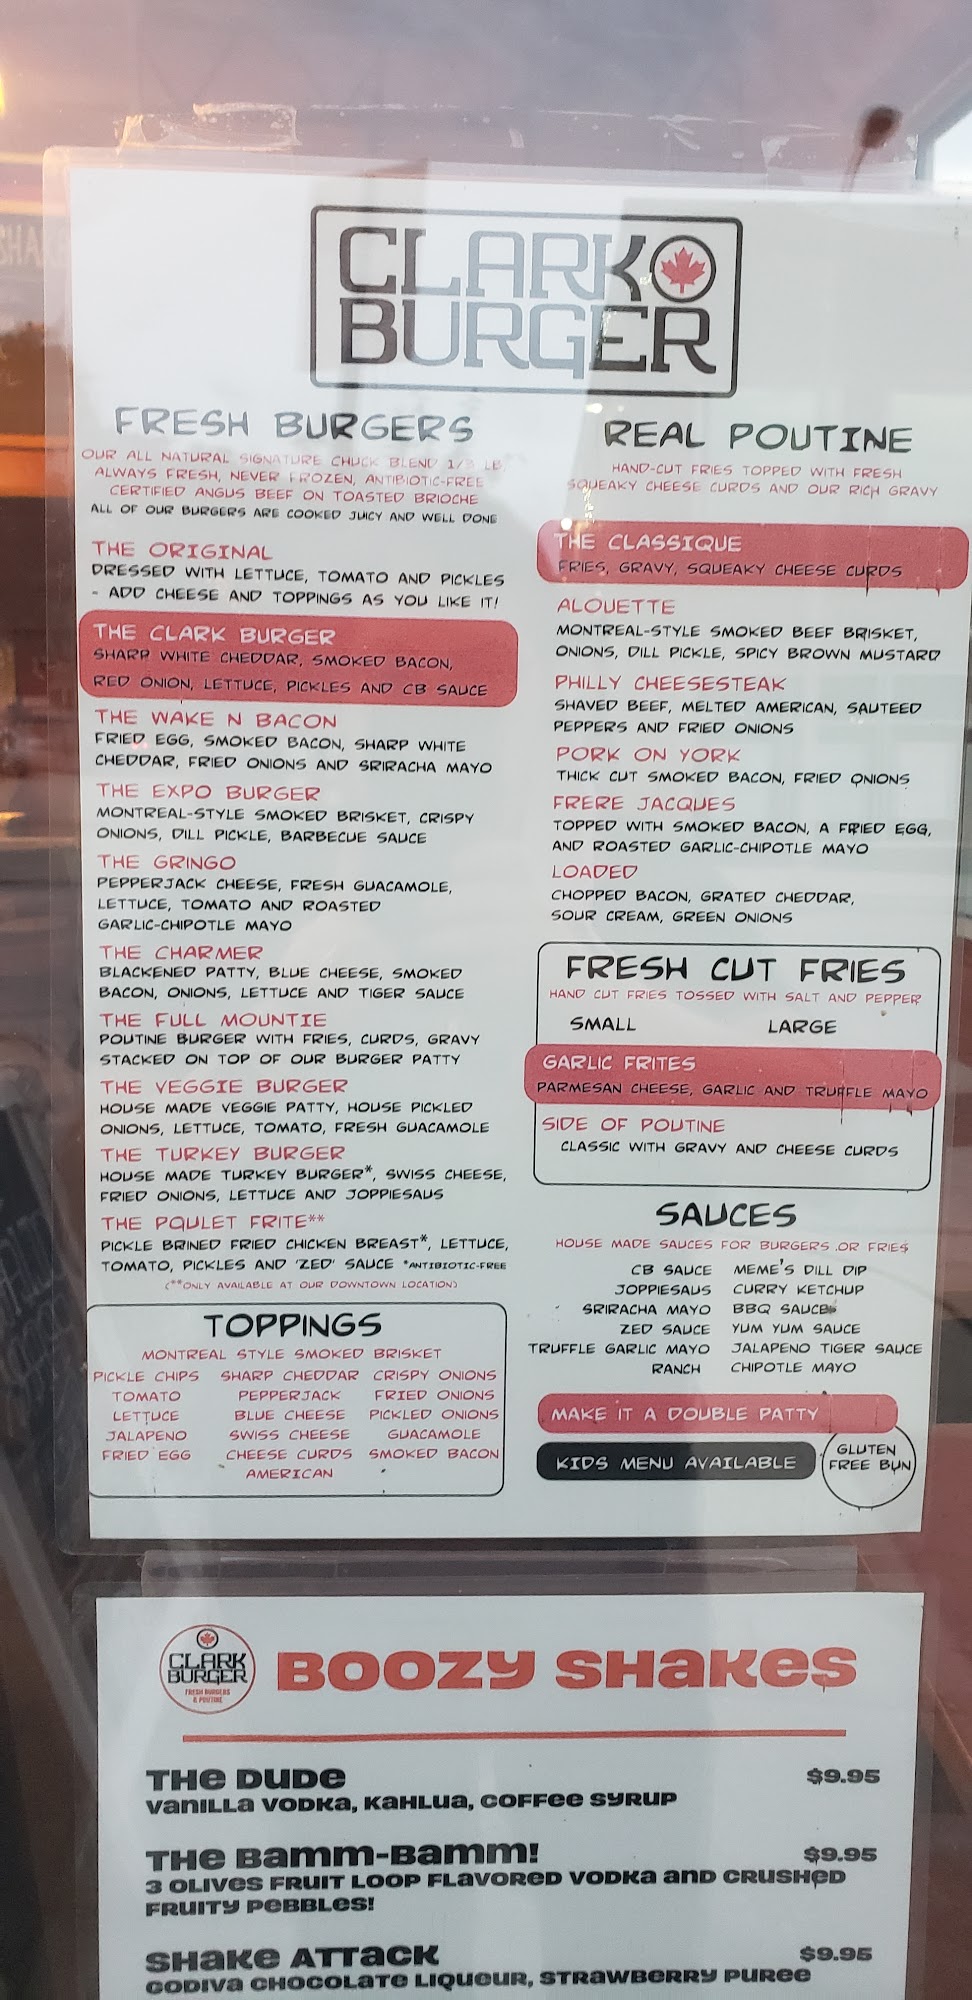 CLARK
BURGER
FRESH BURGERS
OUR ALL NATURAL SIGNATURE CHUCK BLEND 1/3 LB,
ALWAYS FRESH, NEVER FROZEN, ANTIBIOTIC-FREE
CERTIFIED ANGUS BEEF ON TOASTED BRIOCHE
ALL OF OUR BURGERS ARE COOKED JUICY AND WELL DONE
THE ORIGINAL
DRESSED WITH LETTUCE, TOMATO AND PICKLES
- ADD CHEESE AND TOPPINGS AS YOU LIKE IT!
THE CLARK BURGER
SHARP WHITE CHEDDAR, SMOKED BACON,
RED ONION, LETTUCE, PICKLES AND CB SAUCE
THE WAKE N BACON
FRIED EGG, SMOKED BACON, SHARP WHITE
CHEDDAR, FRIED ONIONS AND SRIRACHA MAYO
THE EXPO BURGER
MONTREAL-STYLE SMOKED BRISKET, CRISPY
ONIONS, DILL PICKLE, BARBECUE SAUCE
THE GRINGO
PEPPERJACK CHEESE, FRESH GUACAMOLE,
LETTUCE, TOMATO AND ROASTED
GARLIC-CHIPOTLE MAYO
THE CHARMER
BLACKENED PATTY, BLUE CHEESE, SMOKED
BACON, ONIONS, LETTUCE AND TIGER SAUCE
THE FULL MOUNTIE
POUTINE BURGER WITH FRIES, CURDS, GRAVY
STACKED ON TOP OF OUR BURGER PATTY
THE VEGGIE BURGER
HOUSE MADE VEGGIE PATTY, HOUSE PICKLED
ONIONS, LETTUCE, TOMATO, FRESH GUACAMOLE
THE TURKEY BURGER
HOUSE MADE TURKEY BURGER*, SWISS CHEESE,
FRIED ONIONS, LETTUCE AND JOPPIESAUS
THE POULET FRITE**
PICKLE BRINED FRIED CHICKEN BREAST*, LETTUCE,
TOMATO, PICKLES AND 'ZED' SAUCE *ANTIBIOTIC-FREE
(**ONLY AVAILABLE AT OUR DOWNTOWN LOCATION)
TOPPINGS
MONTREAL STYLE SMOKED BRISKET
PICKLE CHIPS SHARP CHEDDAR CRISPY ONIONS
TOMATO PEPPERJACK FRIED ONIONS
LETTUCE BLUE CHEESE PICKLED ONIONS
JALAPENO SWISS CHEESE GUACAMOLE
FRIED EGG CHEESE CURDS SMOKED BACON
AMERICAN
REAL POUTINE
HAND-CUT FRIES TOPPED WITH FRESH
SQUEAKY CHEESE CURDS AND OUR RICH GRAVY
THE CLASSIQUE
FRIES, GRAVY, SQUEAKY CHEESE CURDS
ALOUETTE
MONTREAL-STYLE SMOKED BEEF BRISKET,
ONIONS, DILL PICKLE, SPICY BROWN MUSTARD
PHILLY CHEESESTEAK
SHAVED BEEF, MELTED AMERICAN, SAUTEED
PEPPERS AND FRIED ONIONS
PORK ON YORK
THICK CUT SMOKED BACON, FRIED ONIONS
FRERE JACQUES
TOPPED WITH SMOKED BACON, A FRIED EGG,
AND ROASTED GARLIC-CHIPOTLE MAYO
LOADED
CHOPPED BACON, GRATED CHEDDAR,
SOUR CREAM, GREEN ONIONS
FRESH CUT FRIES
HAND CUT FRIES TOSSED WITH SALT AND PEPPER
SMALL LARGE
GARLIC FRITES
PARMESAN CHEESE, GARLIC AND TRUFFLE MAYO
SIDE OF POUTINE
CLASSIC WITH GRAVY AND CHEESE CURDS
SAUCES
HOUSE MADE SAUCES FOR BURGERS OR FRIES
CB SAUCE MEME'S DILL DIP
JOPPIESAUS CURRY KETCHUP
SRIRACHA MAYO BBQ SAUCE
ZED SAUCE YUM YUM SAUCE
TRUFFLE GARLIC MAYO JALAPENO TIGER SAUCE
RANCH CHIPOTLE MAYO
MAKE IT A DOUBLE PATTY
KIDS MENU AVAILABLE
GLUTEN
FREE BUN
CLARK
BURGER
FRESH BURGERS
& POUTINE
BOOZY SHAKES
THE DUDE $9.95
VANILLA VODKA, KAHLUA, COFFEE SYRUP
THE BAMM-BAMM! $9.95
3 OLIVES FRUIT LOOP FLAVORED VODKA AND CRUSHED
FRUITY PEBBLES!
SHAKE ATTACK $9.95
GODIVA CHOCOLATE LIQUEUR, STRAWBERRY PUREE